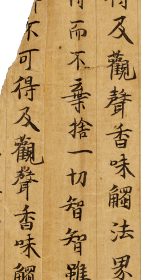 得及觀聲香味觸法界
而不棄捨一切智智雖
不可得及觀聲香味觸